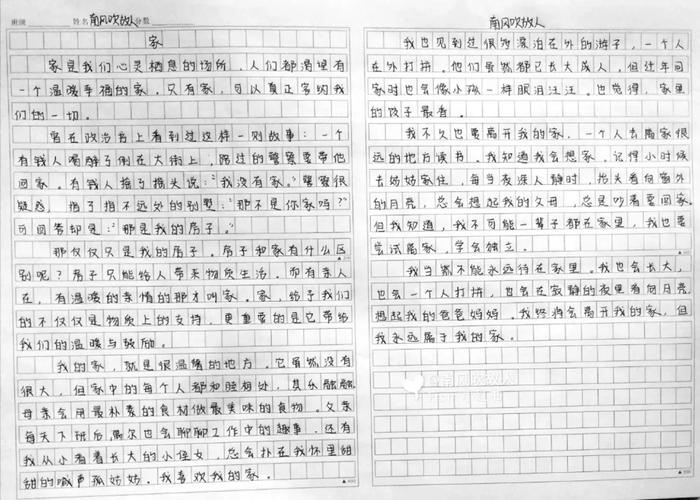 班级 姓名 南风吹故人 分数
家
家是我们心灵栖息的场所,人们都渴望有
一个温暖幸福的家,只有家,可以真正容纳我
们的一切。
曾在政治书上看到过这样一则故事:一个
有钱人喝醉了倒在大街上,路过的警察要带他
回家。有钱人摇了摇头说:“我没有家。”警察很
疑惑,指了指不远处的别墅:“那不是你家吗?”
可回答却是:“那是我的房子。”
那仅仅只是我的房子。房子和家有什么区
别呢?房子只能给人带来物质生活。而有亲人
在,有温暖的亲情的那才叫家。家,给予我们
的不仅仅是物质上的支持,更重要的是它带给
我们的温暖与鼓励。
我的家,就是很温馨的地方。它虽然没有
很大,但家中的每个人都和睦相处,其乐融融
母亲会用最朴素的食材做最美味的食物。父亲
每天下班后,偶尔也会聊聊工作中的趣事。还有
我从小看着长大的小侄女,总会扑在我怀里甜
甜的喊声孤姑姑。我喜欢我的家。
南风吹故人
我也见到过很多漂泊在外的游子,一个人
在外打拼。他们虽然都已长大成人,但过年回
家时也会像小孩一样眼泪汪汪。也觉得,家里
的饺子最香。
我不久也要离开我的家,一个人去离家很
远的地方读书。我知道我会想家。记得小时候
去姑姑家住,每当夜深人静时,抬头看向窗外
的月亮,总会想起我的父母,总是吵着要回家。
但我知道,我不可能一辈子都在家里,我也要
尝试离家,学会独立。
我当然不能永远待在家里。我也会长大,
也会一个人打拼,也会在寂静的夜里看向月亮,
想起我的爸爸妈妈。我终将会离开我的家,但
我永远属于我的家。
南风吹故人